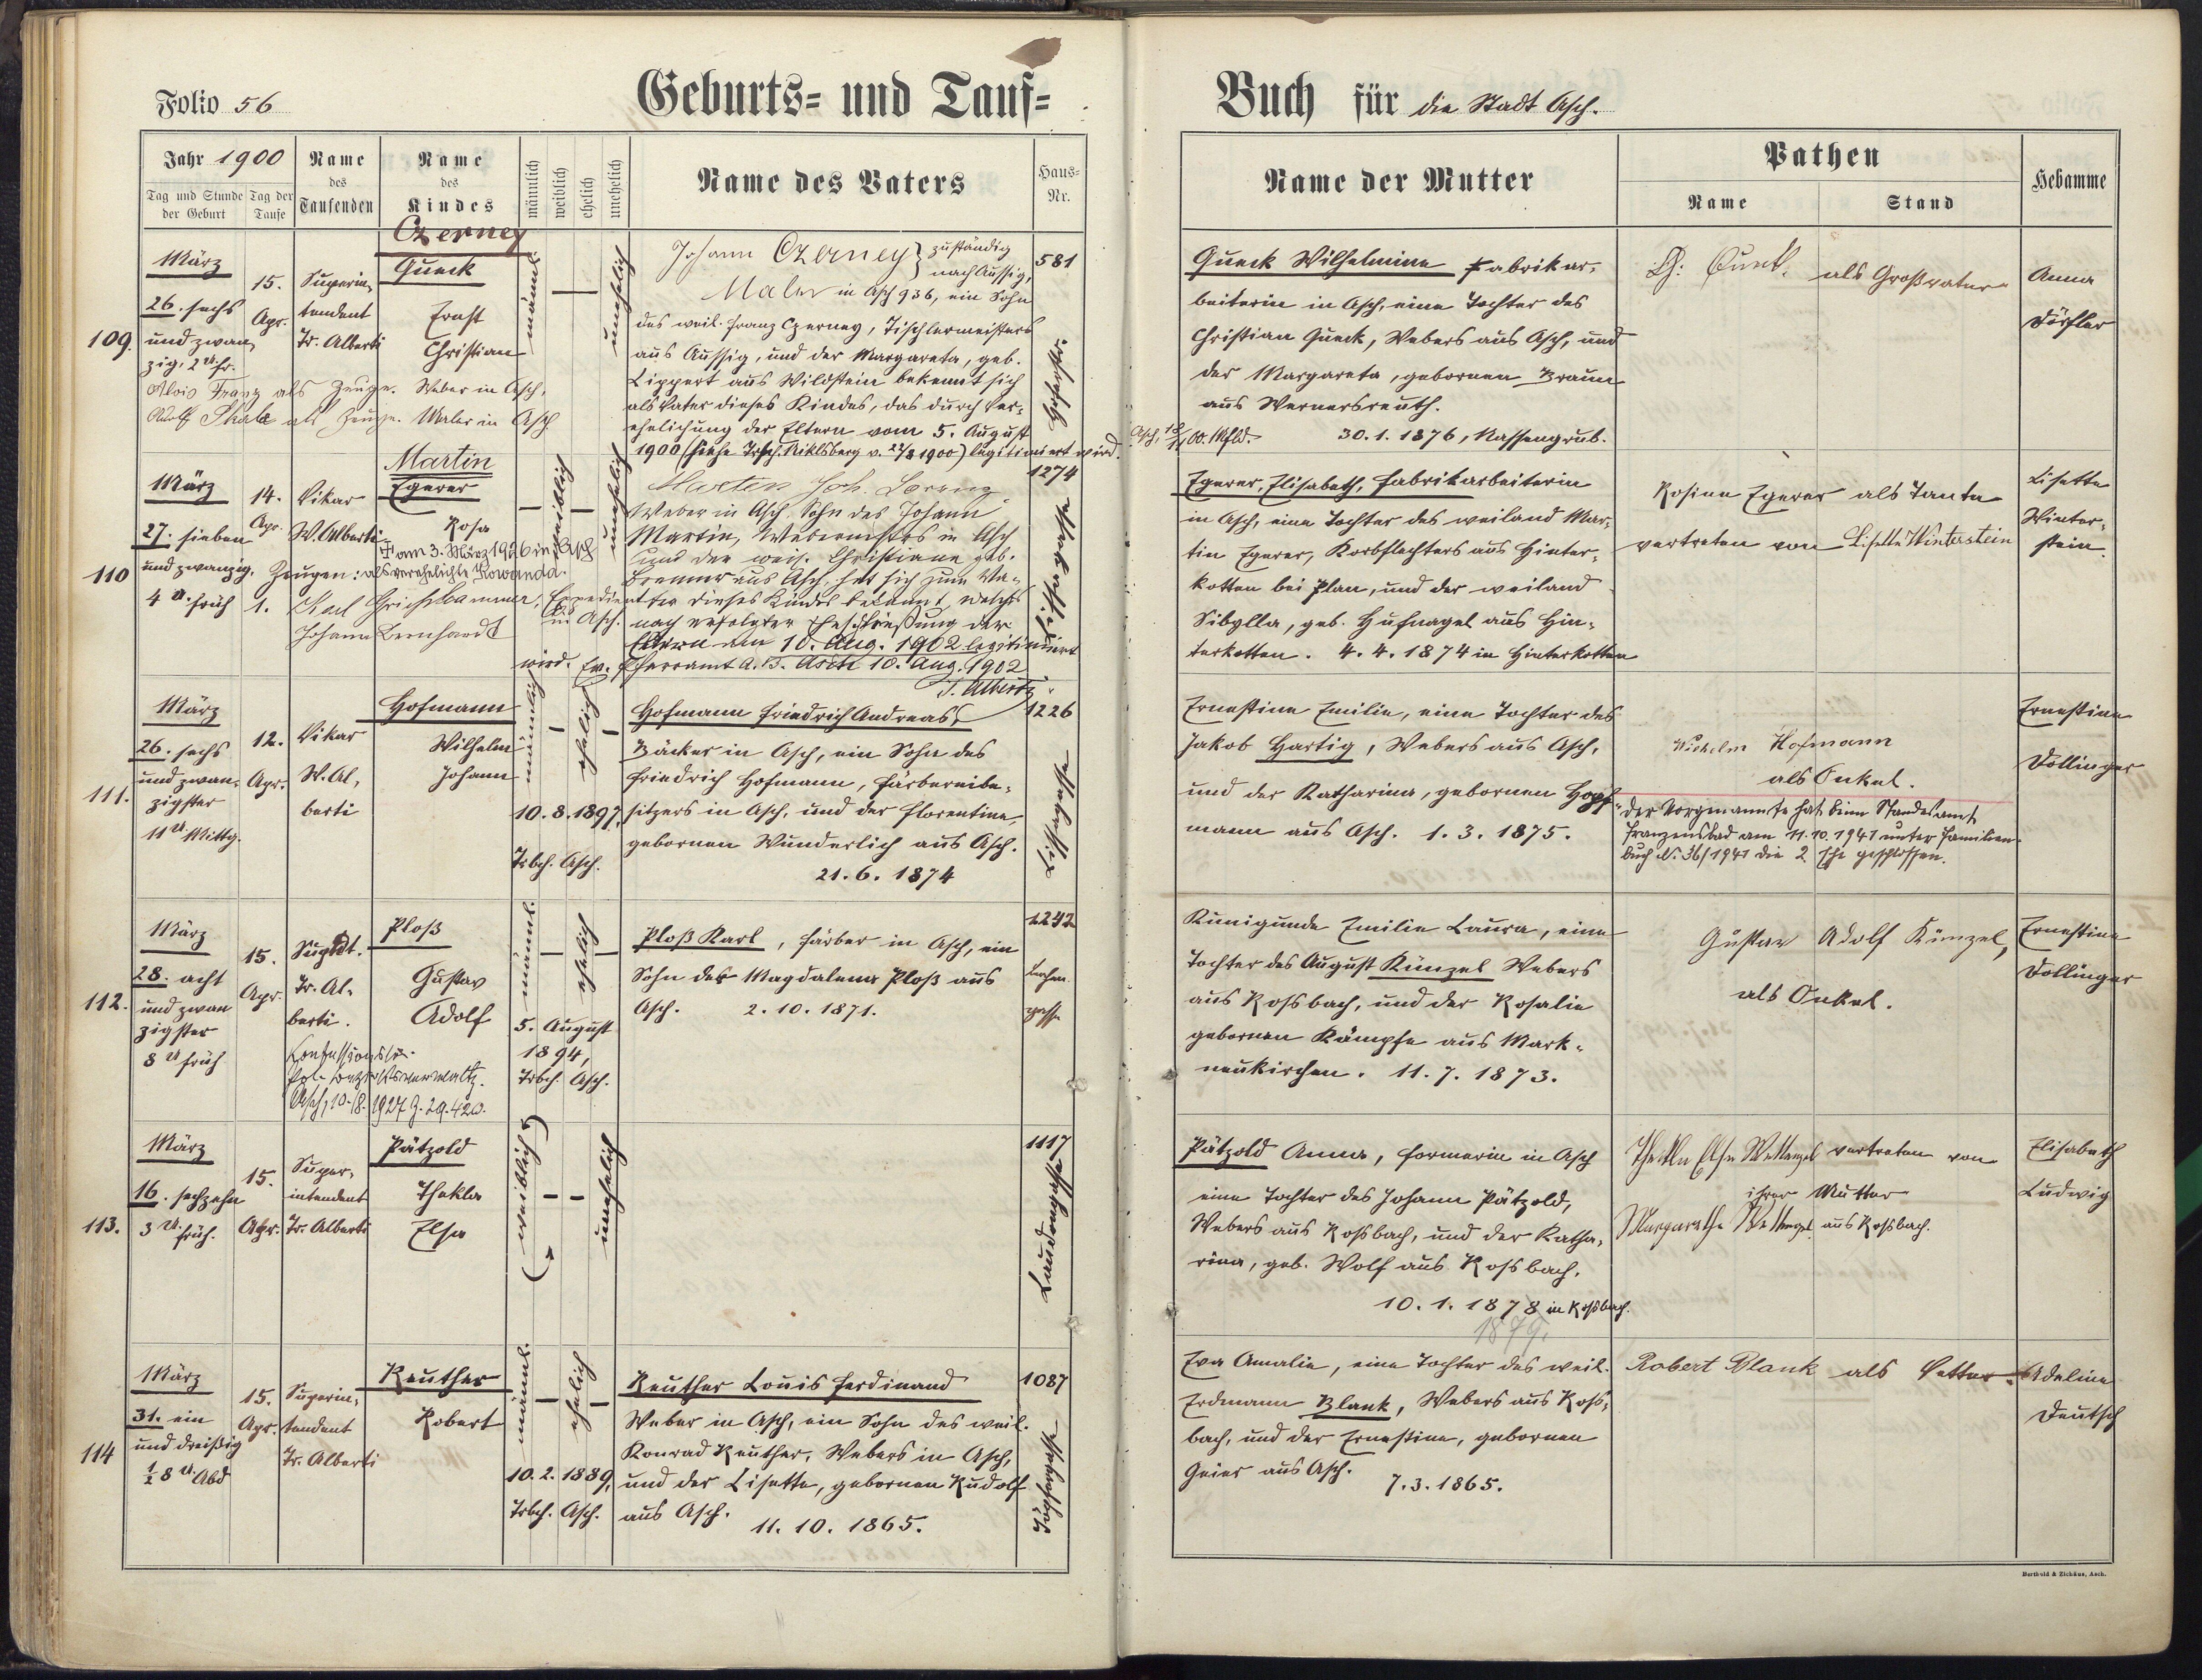 Folio 56
Geburts= und Tauf=
Buch für die Stadt Asch.
Jahr 1900
Tag und Stunde der Geburt
Tag der Taufe
Name des Taufenden
Name des Kindes
männlich
weiblich
ehelich
unehelich
Name des Vaters
Haus=Nr.
Name der Mutter
Pathen
Name
Stand
Hebamme
109.
März
26. sechs
und zwan
zig, 2 Uhr.
15.
Apr.
Superin,
tendent
Tr. Alberti
Czerney
Queck
Ernst
Christian
männl.
unehelich
Alois Franz als Zeuge. Weber in Asch,
als Zeuge. Maler in Asch
Johann Czerney } zuständig
nach Aussig,
Maler in Asch 936, ein Sohn
des weil. Franz Czerney, Tischlermeisters
aus Aussig, und der Margareta, geb.
Lippert aus Wildstein bekennt sich
als Vater dieses Kindes, das durch Ver=
ehelichung der Eltern vom 5. August
1900 (siehe Trsch. Niklsberg v. 1900) legitimiert wird.
581
Queck Wilhelmine Fabrikar=
beiterin in Asch, eine Tochter des
Christian Queck, Webers aus Asch, und
der Margareta, gebornen Braun
aus Wernersreuth.
30. 1. 1876, Nassengrub.
Queck. als Großvater
Anna
Dörfler
110
März
27. sieben
und zwanzig,
4 U. früh
14.
Apr.
Vikar
W. Alberti
Martin
Egerer
Rosa
† am 3. März 1926 in Asch
als verehelichte Kowanda.
weiblich
unehelich
Zeugen:
1. Karl Expedient
in Asch.
Johann Bernhardt
Martin Joh. Lorenz
Weber in Asch, Sohn des Johann
Martin, Webermeisters in Asch
und der weil. Christiane geb.
Bremer aus Asch, hat sich zum Va=
ter dieses Kindes bekannt, welches
nach erfolgter Eheschließung der
Eltern am 10. Aug. 1902 legitimiert
wird. Ev. Pfarramt A. B. Asch 10. Aug. 1902
T. Alberti
1274
Egerer, Elisabeth, Fabrikarbeiterin
in Asch, eine Tochter des weiland Mar=
tin Egerer, Korbflechters aus Hinter=
kotten bei Plan, und der weiland
Sibylla, geb. Hufnagel aus Hin=
terkotten. 4. 4. 1874 in Hinterkotten
Rosina Egerer als Tante
vertreten von Lisette Winterstein
Lisette
Winter=
stein.
111.
März
26. sechs
und zwan=
zigster
11 U Mittg.
12.
Apr.
Vikar
W. Al=
berti
Hofmann
Wilhelm
Johann
männlich
ehelich
10. 8. 1897,
Trbch. Asch.
Hofmann Friedrich Andreas,
Bäcker in Asch, ein Sohn des
Friedrich Hofmann, Färbereibe=
sitzers in Asch, und der Florentine
gebornen Wunderlich aus Asch.
21. 6. 1874
1226
Ernestine Emilie, eine Tochter des
Jakob Hartig, Webers aus Asch,
und der Katharina, gebornen Hopf=
mann aus Asch. 1. 3. 1875.
Wilhelm Hofmann
als Onkel.
Der Vorgenannte hat beim Standesamt
Franzensbad am 11. 10. 1941 unter Familien=
buch Nr. 36/1941 die 2. Ehe geschlossen.
Ernestine
Dollinger
112.
März
28. acht
und zwan
zigster
8 U früh
15.
Apr.
Suptdt.
Tr. Al=
berti.
Ploß
Gustav
Adolf
männl.
ehelich
5. August
1894,
Trbch. Asch.
Konfessionslos.
Asch, 10./8. 1927 Z. 29.420.
Ploß Karl, Färber in Asch, ein
Sohn der Magdalena Ploß aus
Asch. 2. 10. 1871.
1242
Kunigunda Emilie Laura, eine
Tochter des August Künzel Webers
aus Rossbach, und der Rosalie
gebornen Kämpfe aus Mark=
neukirchen. 11. 7. 1873.
Gustav Adolf Künzel,
als Onkel.
Ernestine
Dollinger
113.
März
16. sechzehn
3 U. früh.
15.
Apr.
Super=
intendent
Tr. Alberti
Pätzold
Thekla
Elsa
weiblich
unehelich
1117
Pätzold Anna, Formerin in Asch
eine Tochter des Johann Pätzold,
Webers aus Rossbach, und der Katha=
rina, geb. Wolf aus Rossbach.
10. 1. 1878 in Rossbach.
1879.
Thekla Elsa Wettengel vertreten von
ihrer Mutter
Margarethe Wettengel aus Rossbach.
Elisabeth
Ludwig
114
März
31. ein
und dreißig
½ 8 U. Abd
15.
Apr.
Superin=
tendent
Tr. Alberti
Reuther
Robert
männl.
ehelich
10. 2. 1889,
Trbch. Asch.
Reuther Louis Ferdinand
Weber in Asch, ein Sohn des weil.
Konrad Reuther, Webers in Asch,
und der Lisette, gebornen Rudolf
aus Asch. 11. 10. 1865.
1087
Eva Amalie, eine Tochter des weil.
Erdmann Blank, Webers aus Ross=
bach, und der Ernestine, gebornen
Geier aus Asch.
7. 3. 1865.
Robert Blank als Vetter.
Adeline
Deutsch
Berthold & Zichäus, Asch.